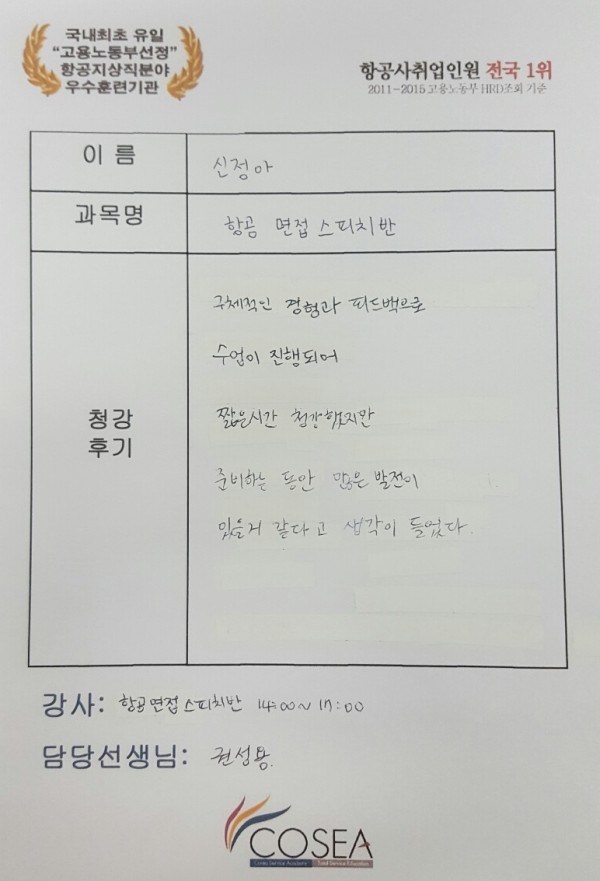 국내최초 유일
"고용노동부선정"
항공지상직분야
우수훈련기관
항공사취업인원 전국 1위
2011-2015 고용노동부 HRD조회 기준
이 름
신정아
과목명
항공 면접 스피치반
청강
후기
구체적인 경험과 피드백으로
수업이 진행되어
짧은시간 청강했지만
준비하는 동안 많은 발전이
있을거 같다고 생각이 들었다.
강사: 항공면접스피치반 14:00~17:00
담당선생님: 권성용
COSEA
Korea Service Academy Total Service Education